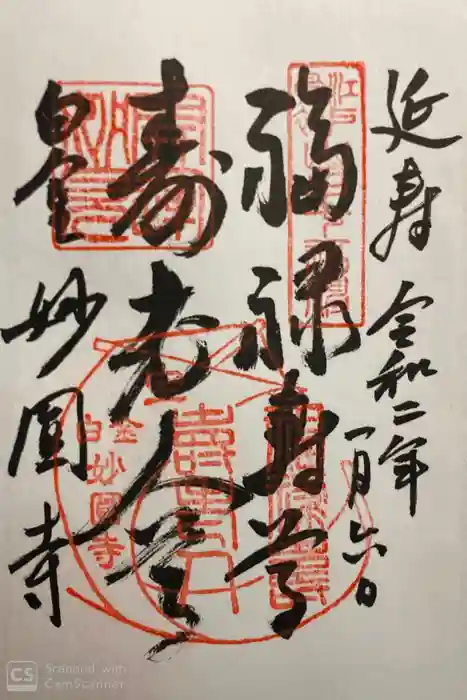 延寿
令和二年
一月六日
福禄寿尊
寿老人尊
白金
妙圓寺
白金
妙圓寺
CS Scanned with CamScanner